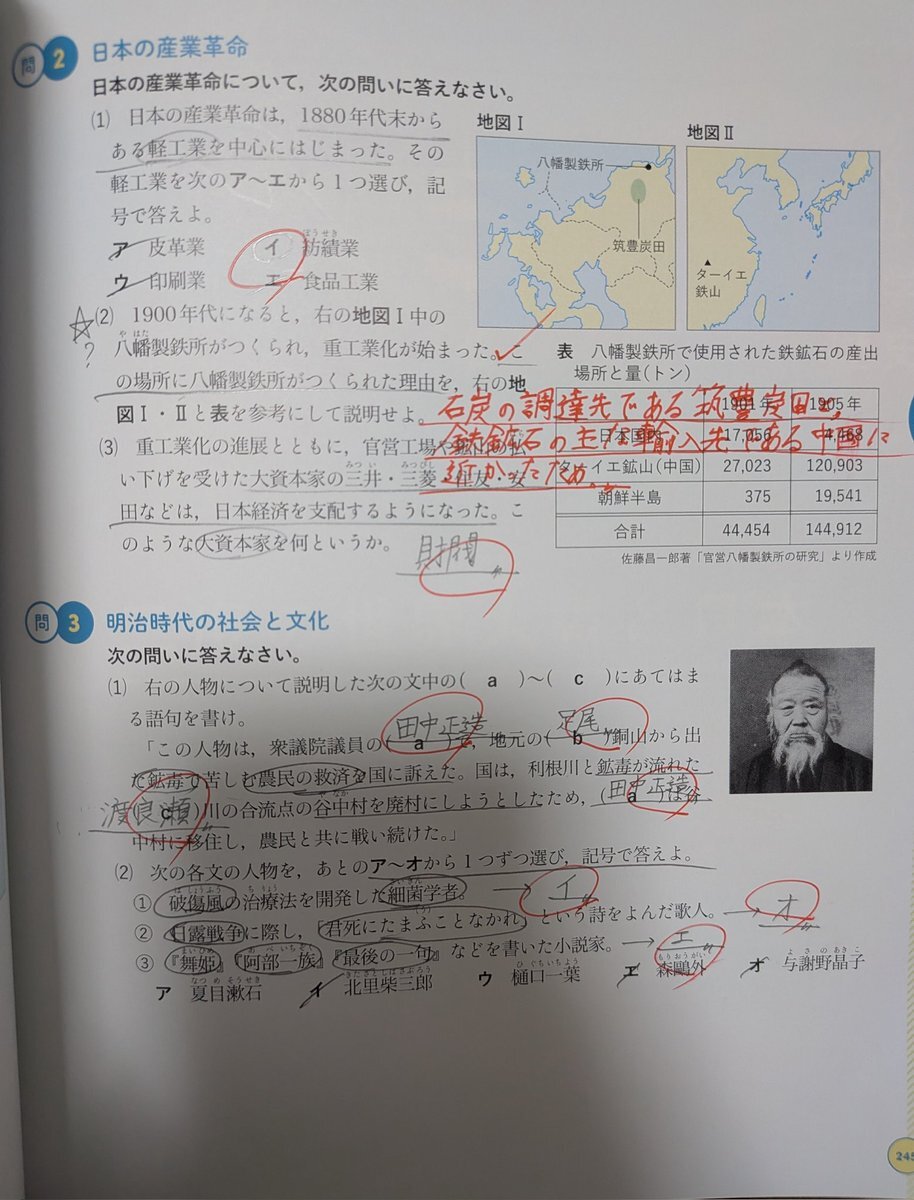 問2 日本の産業革命
日本の産業革命について，次の問いに答えなさい。
(1) 日本の産業革命は，1880年代末から
ある軽工業を中心にはじまった。その
軽工業を次のア〜エから1つ選び，記
号で答えよ。
ア 皮革業 イ 紡績業
ぼうせき
ウ 印刷業 エ 食品工業
地図Ⅰ
八幡製鉄所
筑豊炭田
地図Ⅱ
ターイエ
鉄山
☆(2) 1900年代になると，右の地図Ⅰ中の
?
やはた
八幡製鉄所がつくられ，重工業化が始まった。こ
の場所に八幡製鉄所がつくられた理由を，右の地
図Ⅰ・Ⅱと表を参考にして説明せよ。
石炭の調達先である筑豊炭田と、
鉄鉱石の主な輸入先である中国に
近かったため。
(3) 重工業化の進展とともに，官営工場や
い下げを受けた大資本家の三井・三菱・住友・安
みつい みつびし
田などは，日本経済を支配するようになった。こ
のような大資本家を何というか。
財閥
表 八幡製鉄所で使用された鉄鉱石の産出
場所と量(トン)
1901年 1905年
日本国内 17,056 4,468
ターイエ鉱山(中国) 27,023 120,903
朝鮮半島 375 19,541
合計 44,454 144,912
佐藤昌一郎著「官営八幡製鉄所の研究」より作成
問3 明治時代の社会と文化
次の問いに答えなさい。
(1) 右の人物について説明した次の文中の( a )〜( c )にあてはま
る語句を書け。
田中正造 足尾
「この人物は，衆議院議員の( a )で，地元の( b )銅山から出
た鉱毒で苦しむ農民の救済を国に訴えた。国は，利根川と鉱毒が流れた
渡良瀬 田中正造
( c )川の合流点の谷中村を廃村にしようとしたため，( a )は谷
やなか
中村に移住し，農民と共に戦い続けた。」
(2) 次の各文の人物を，あとのア〜オから1つずつ選び，記号で答えよ。
① 破傷風の治療法を開発した細菌学者。→イ
はしょうふう ちりょう さいきん
② 日露戦争に際し，「君死にたまふことなかれ」という詩をよんだ歌人。→オ
③ 『舞姫』『阿部一族』『最後の一句』などを書いた小説家。→エ
まいひめ あべいちぞく
ア 夏目漱石 イ 北里柴三郎 ウ 樋口一葉 エ 森鷗外 オ 与謝野晶子
なつめそうせき きたさとしばさぶろう ひぐちいちよう もりおうがい よさのあきこ
245